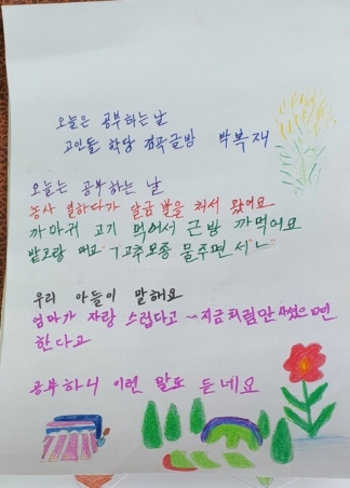 오늘은 공부하는 날
고인돌 학당 검곡글방 박복재
오늘는 공부하는 날
농사 일하다가 달금불을 처서 왔어요
까마귀 고기 먹어서 근방 까먹어요
밭고랑 매고 고추모종 물주면서ㄴ
우리 아들이 말해요
엄마가 자랑 스럽다고 ~ 지금처럼만 사셨으면
한다고
공부하니 이런 말도 듣네요